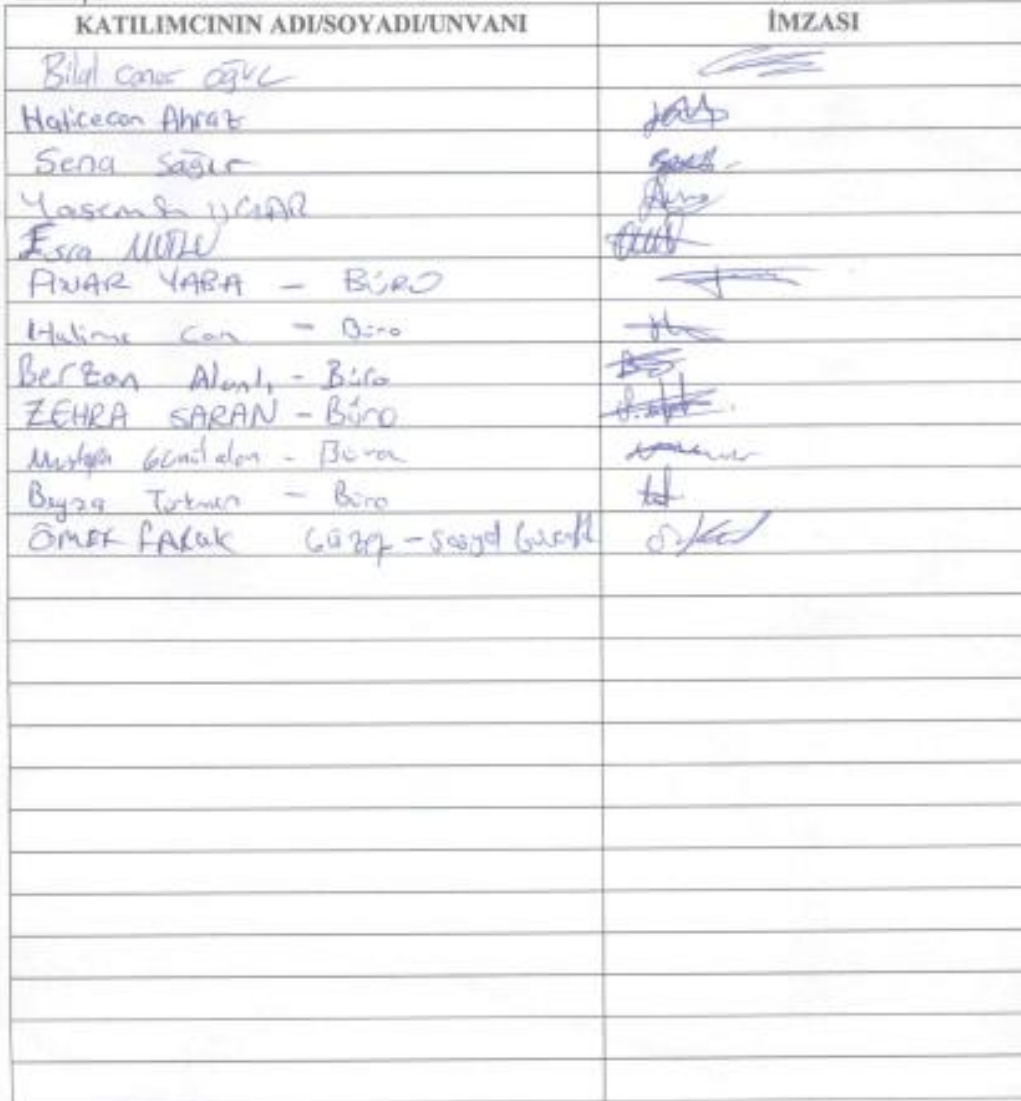 KATILIMCININ ADI/SOYADI/UNVANI İMZASI
Bilal Caner Oğuz
Haticecan Ahraz
Sena Sağır
Yasemin UÇAR
Esra MUTLU
PINAR YABA - BÜRO
Halime Can - Büro
Berzan - Büro
ZEHRA SARAN - Büro
Mustafa - Büro
Beyza Türkmen - Büro
ÖMER FARUK - Sosyal Güvenlik